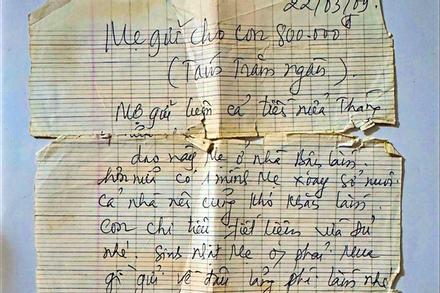 22/03/09.
Mẹ gửi cho con 800.000đ
(Tám Trăm ngàn).
MB gửi luôn cả tiền nửa Tháng
dạo này Mẹ ở nhà Bận lắm.
hơn nữa có 1 mình Mẹ xoay sở nuôi
cả nhà nên cũng khó khăn lắm.
con chi tiêu tiết kiệm và đủ
nhé. Sinh nhật Mẹ phải mua
gì gửi về đâu lãng phí lắm nhé